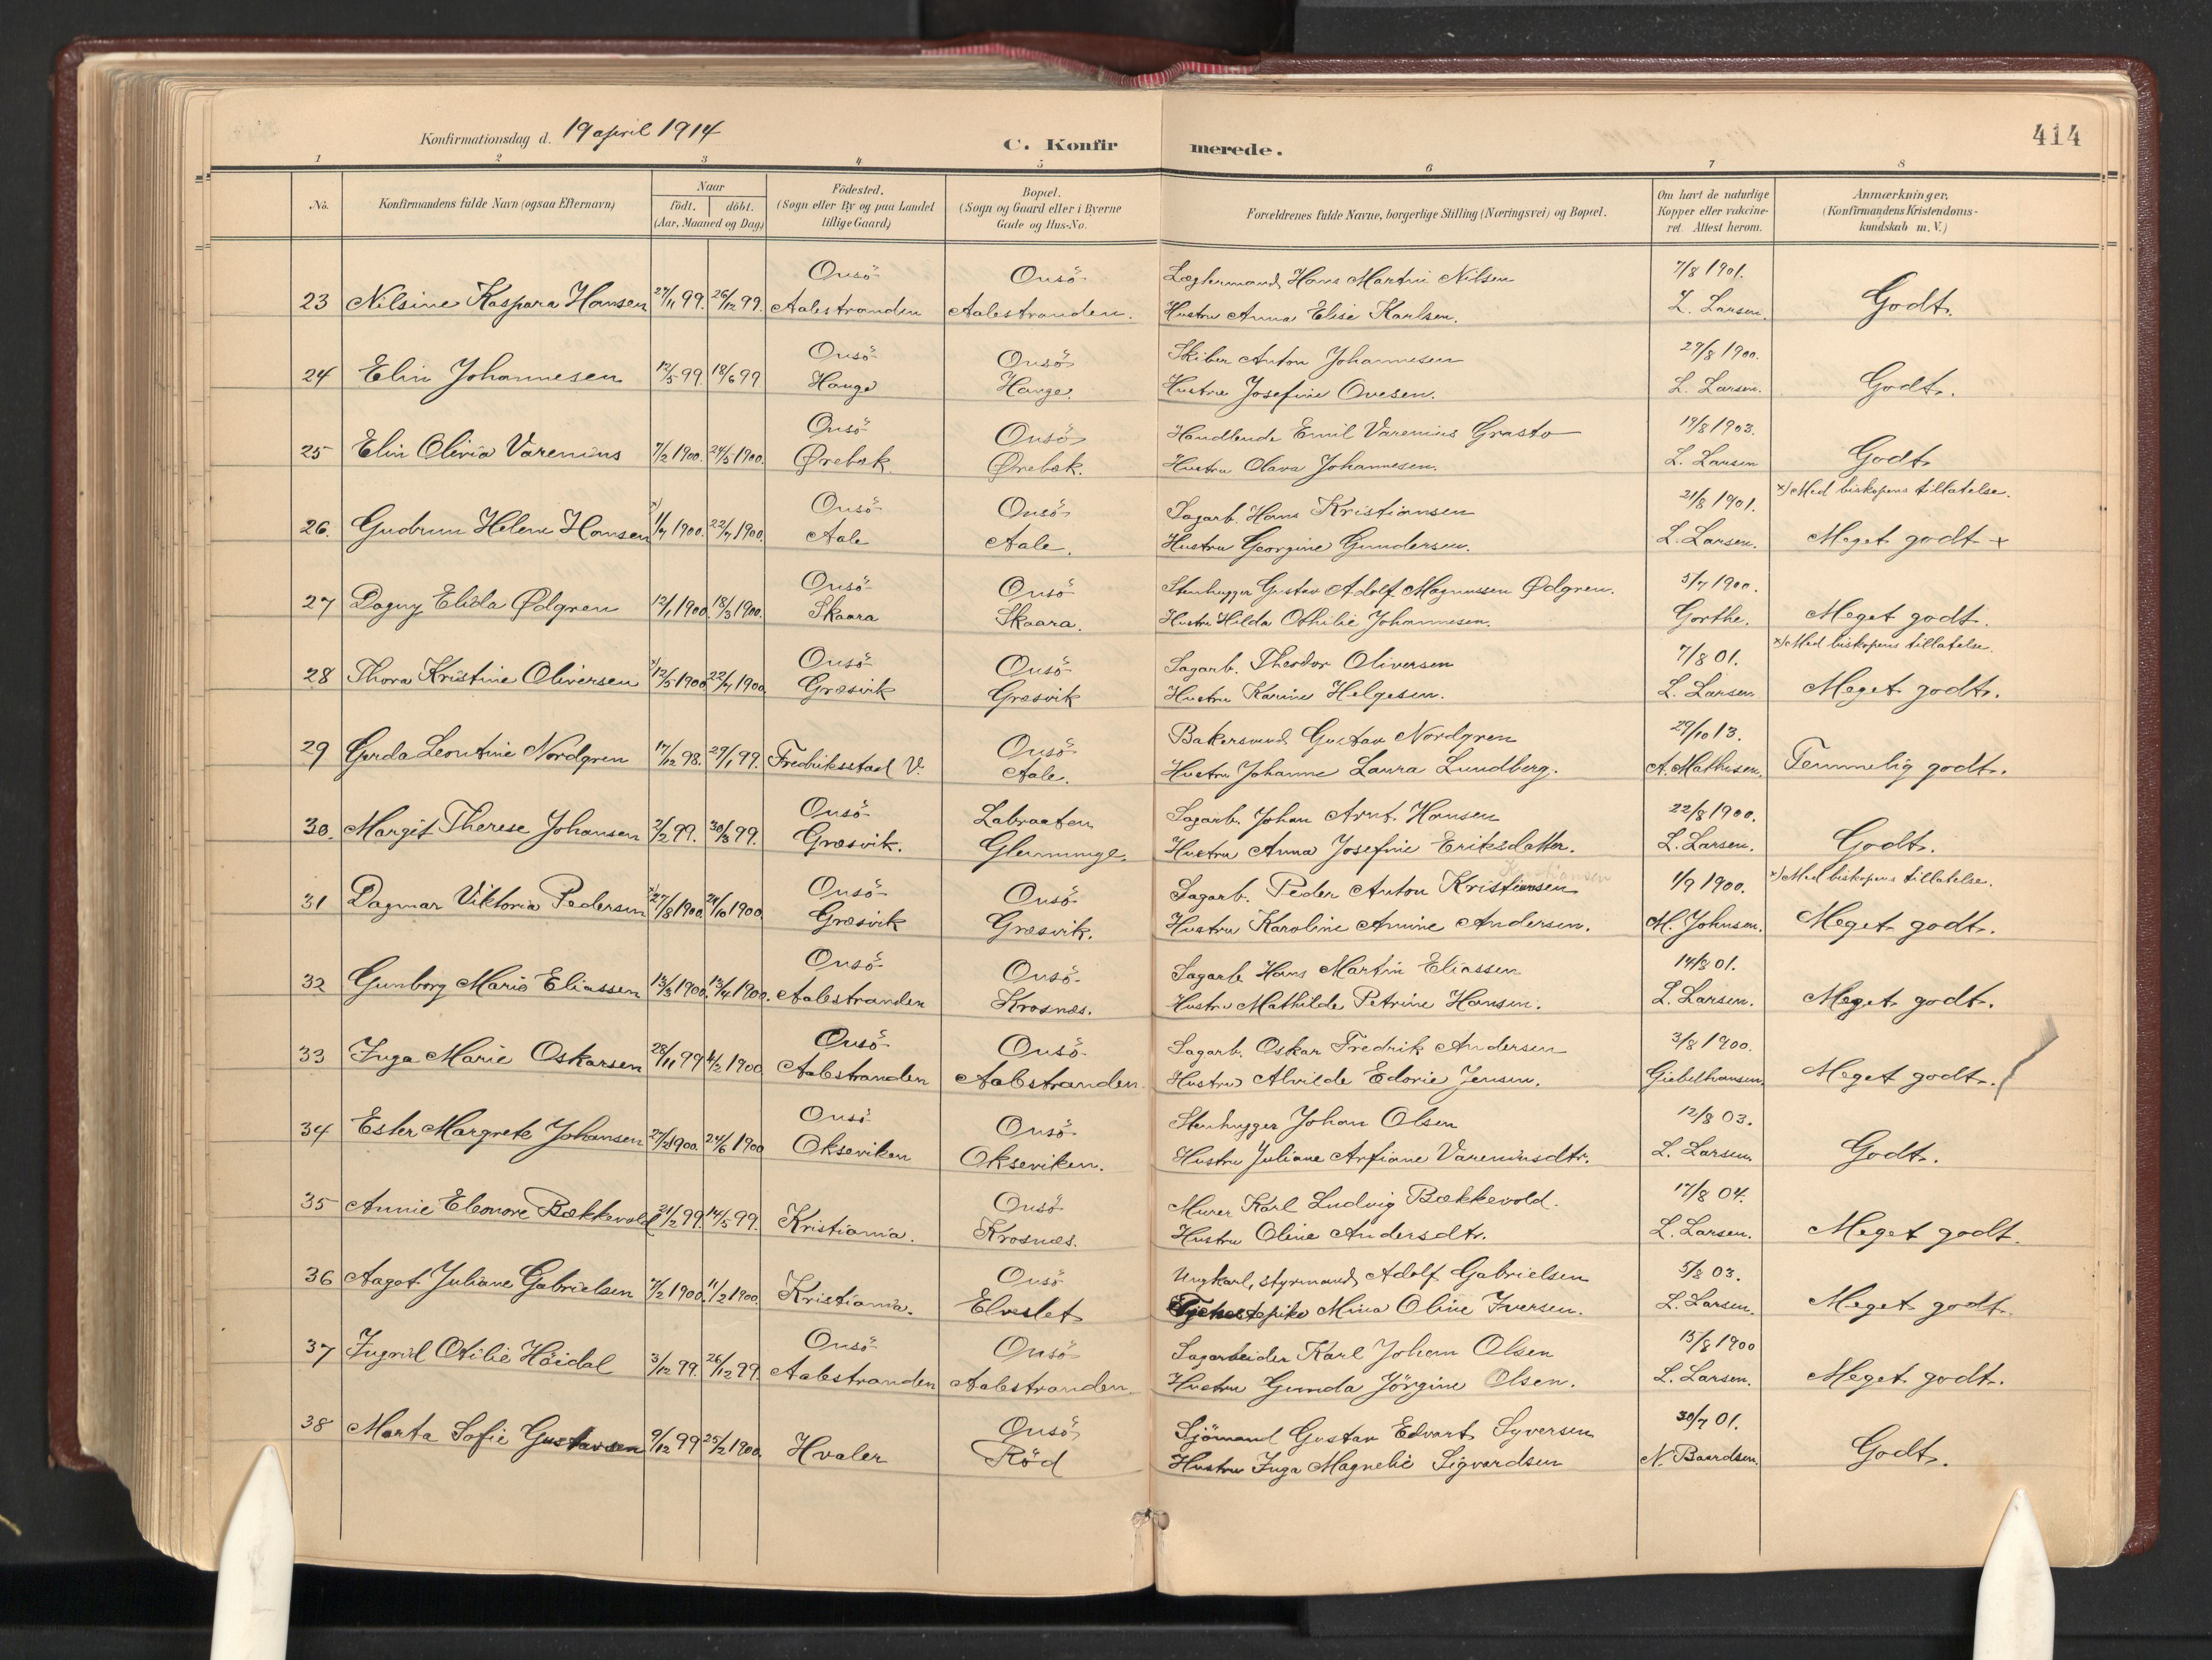 Konfirmationsdag d. 19 april 1914
C. Konfirmerede.
414
1 2 3 4 5 6 7 8
No.
Konfirmandens fulde Navn (ogsaa Efternavn)
Naar
födt. döbt.
(Aar, Maaned og Dag)
Födested.
(Sogn eller By og paa Landet
tillige Gaard)
Bopæl.
(Sogn og Gaard eller i Byerne
Gade og Hus-No.
Forældrenes fulde Navne, borgerlige Stilling (Næringsvei) og Bopæl.
Om havt de naturlige
Kopper eller vakcine-
ret. Attest herom.
Anmærkninger,
(Konfirmandens Kristendoms-
kundskab m. V.)
Onsö Onsö Hans Martin Nilsen 7/8 1901.
23 Nilsine Kaspara Hansen 27/11 99. 26/12 99. Aalestranden Aalestranden. Hustru Anna Elise Karlsen. L. Larsen. Godt.
Onsö Onsö Skiber Anton Johannesen 29/8 1900.
24 Elin Johannesen 12/5 99. 18/6 99 Hauge Hauge. Hustru Josefine Ovesen. L. Larsen. Godt.
Onsö Onsö Handlende Emil Varenius Grasto 19/8 1903.
25 Elin Olivia Varenius 7/2 1900. 24/5 1900. Ørebæk Ørebæk. Hustru Olava Johannesen. L. Larsen Godt
Onsö Onsö Sagarb. Hans Kristiansen 21/8 1901. x) Med biskopens tillatelse.
26. Gudrun Helene Hansen x) 1/7 1900. 22/7 1900. Aale Aale. Hustru Georgine Gundersen. L. Larsen. Meget godt x
Onsö Onsö Stenhugger Gustav Adolf Magnussen Ødgren. 5/7 1900.
27 Dagny Elida Ødgren 12/1 1900. 18/3 1900. Skaara Skaara. Hustru Hilda Othilie Johannesen. Gorthe. Meget godt.
Onsö Onsö Sagarb. Theodor Oliversen 7/8 01. x) Med biskopens tillatelse.
28 Thora Kristine Oliversen x) 12/5 1900 22/7 1900. Græsvik Græsvik Hustru Karine Helgesen. L. Larsen Meget godt.
Onsö Bakersvend Gustav Nordgren 29/10 13.
29 Gerda Leontine Nordgren 17/12 98. 29/1 99. Fredriksstad V. Aale. Hustru Johanne Laura Lundberg. A. Mathisen. Temmelig godt.
Onsö Labraaten Sagarb. Johan Arnt. Hansen 22/8 1900.
30. Margit Therese Johansen 2/2 99. 30/3 99. Græsvik. Glemminge. Hustru Anna Josefine Eriksdatter. L. Larsen. Godt.
Kristiansen
Onsö Onsö Sagarb. Peder Anton Kristiansen 1/9 1900. x) Med biskopens tillatelse.
31 Dagmar Viktoria Pedersen x) 27/8 1900. /10 1900. Græsvik Græsvik. Hustru Karoline Amine Andersen. M. Johnsen. Meget godt.
Onsö Onsö Sagarb Hans Martin Eliassen 14/8 01.
32 Gunborg Marie Eliassen 13/3 1900. 13/4 1900. Aalestranden Krosnæs. Hustru Mathilde Petrine Hansen. L. Larsen. Meget godt.
Onsö Onsö Sagarb. Oskar Fredrik Andersen 3/8 1900.
33 Inga Marie Oskarsen 28/11 99 4/2 1900 Aalestranden Aalestranden Hustru Alvilde Edorie Jensen. Giebelhausen Meget godt.
Onsö Onsö Stenhugger Johan Olsen 12/8 03.
34 Ester Margrete Johansen 27/2 1900. 24/6 1900 Okseviken Okseviken. Hustru Juliane Arfiane Vareniusdtr. L. Larsen. Godt.
Onsö Murer Karl Ludvig Bækkevold. 17/8 04.
35 Annie Eleonore Bækkevold 21/2 99. 14/5 99. Kristiania. Krosnæs. Hustru Oline Andersdtr. L. Larsen. Meget godt.
Onsö Ungkarl, styrmand Adolf Gabrielsen 5/8 03.
36 Aagot Juliane Gabrielsen 7/2 1900. 11/2 1900. Kristiania. Elveslet Mina Oline Iversen. L. Larsen. Meget godt.
Onsö Onsö Sagarbeider Karl Johan Olsen 15/8 1900
37 Ingrid Otilie Höidal 3/12 99. 26/12 99. Aalestranden Aalestranden. Hustru Gunda Jörgine Olsen. L. Larsen. Meget godt.
Onsö Sjömand Gustav Edvart Syversen 30/7 01.
38 Marta Sofie Gustavsen 9/12 99 25/2 1900. Hvaler Röd Hustru Inga Magnelie Sigvardsen N. Baardsen. Godt.